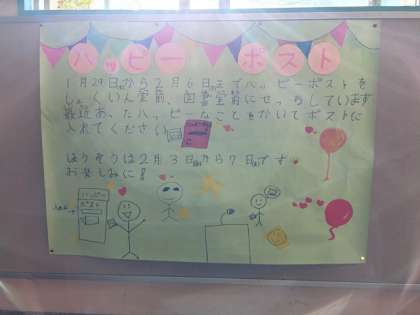 ハッピーポスト
1月29日から2月6日までハッピーポストを
しょくいん室前、図書室前にせっちしています
最近あったハッピーなことをかいてポストに
入れてください
ほうそうは2月3日から7日です
お楽しみに!